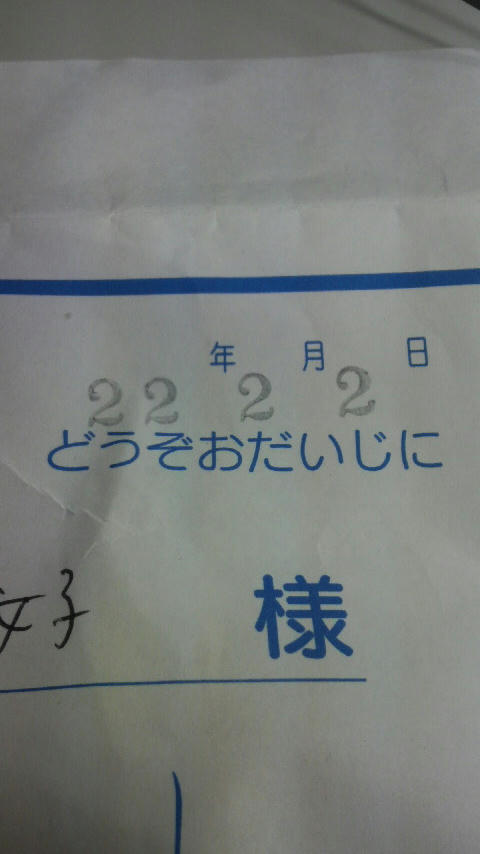 年 月 日
22 2 2
どうぞおだいじに
子 様